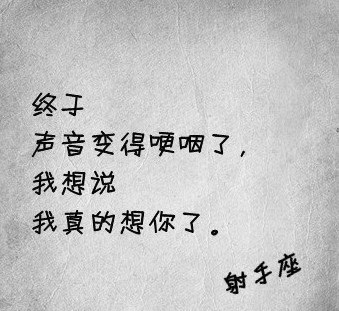 终于
声音变得哽咽了,
我想说
我真的想你了。
射手座